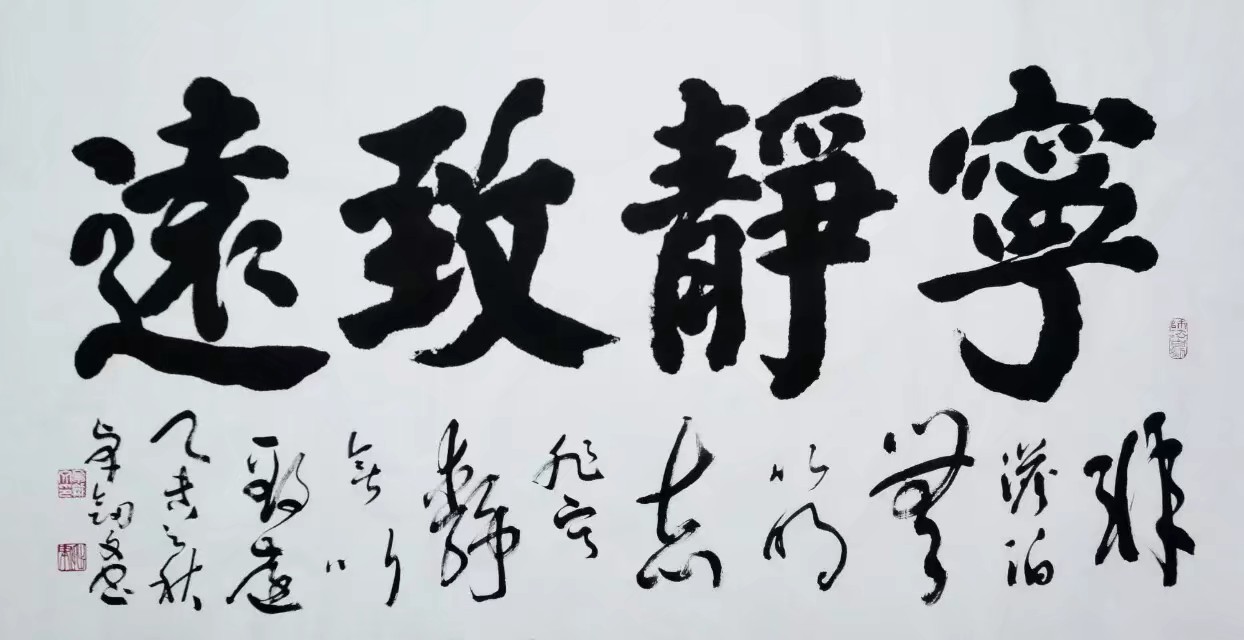 寧靜致遠
非
澹泊
無
以明
志
非寧
靜
無以
致遠
乙未之秋